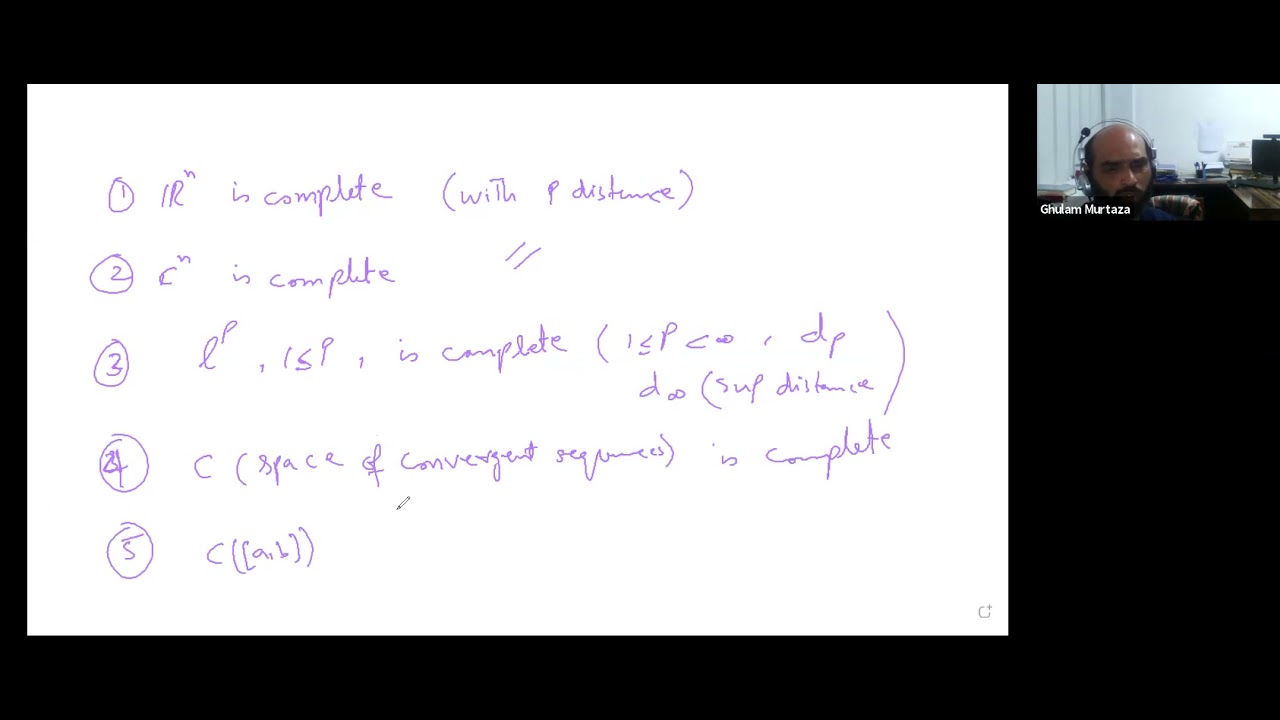 ① ℝⁿ is complete (with p distance)
② ℂⁿ is complete //
③ lᵖ, 1≤p, is complete (1≤p<∞, dₚ
d∞ (sup distance)
④ C (space of convergent sequences) is complete
⑤ C([a,b])
Ghulam Murtaza